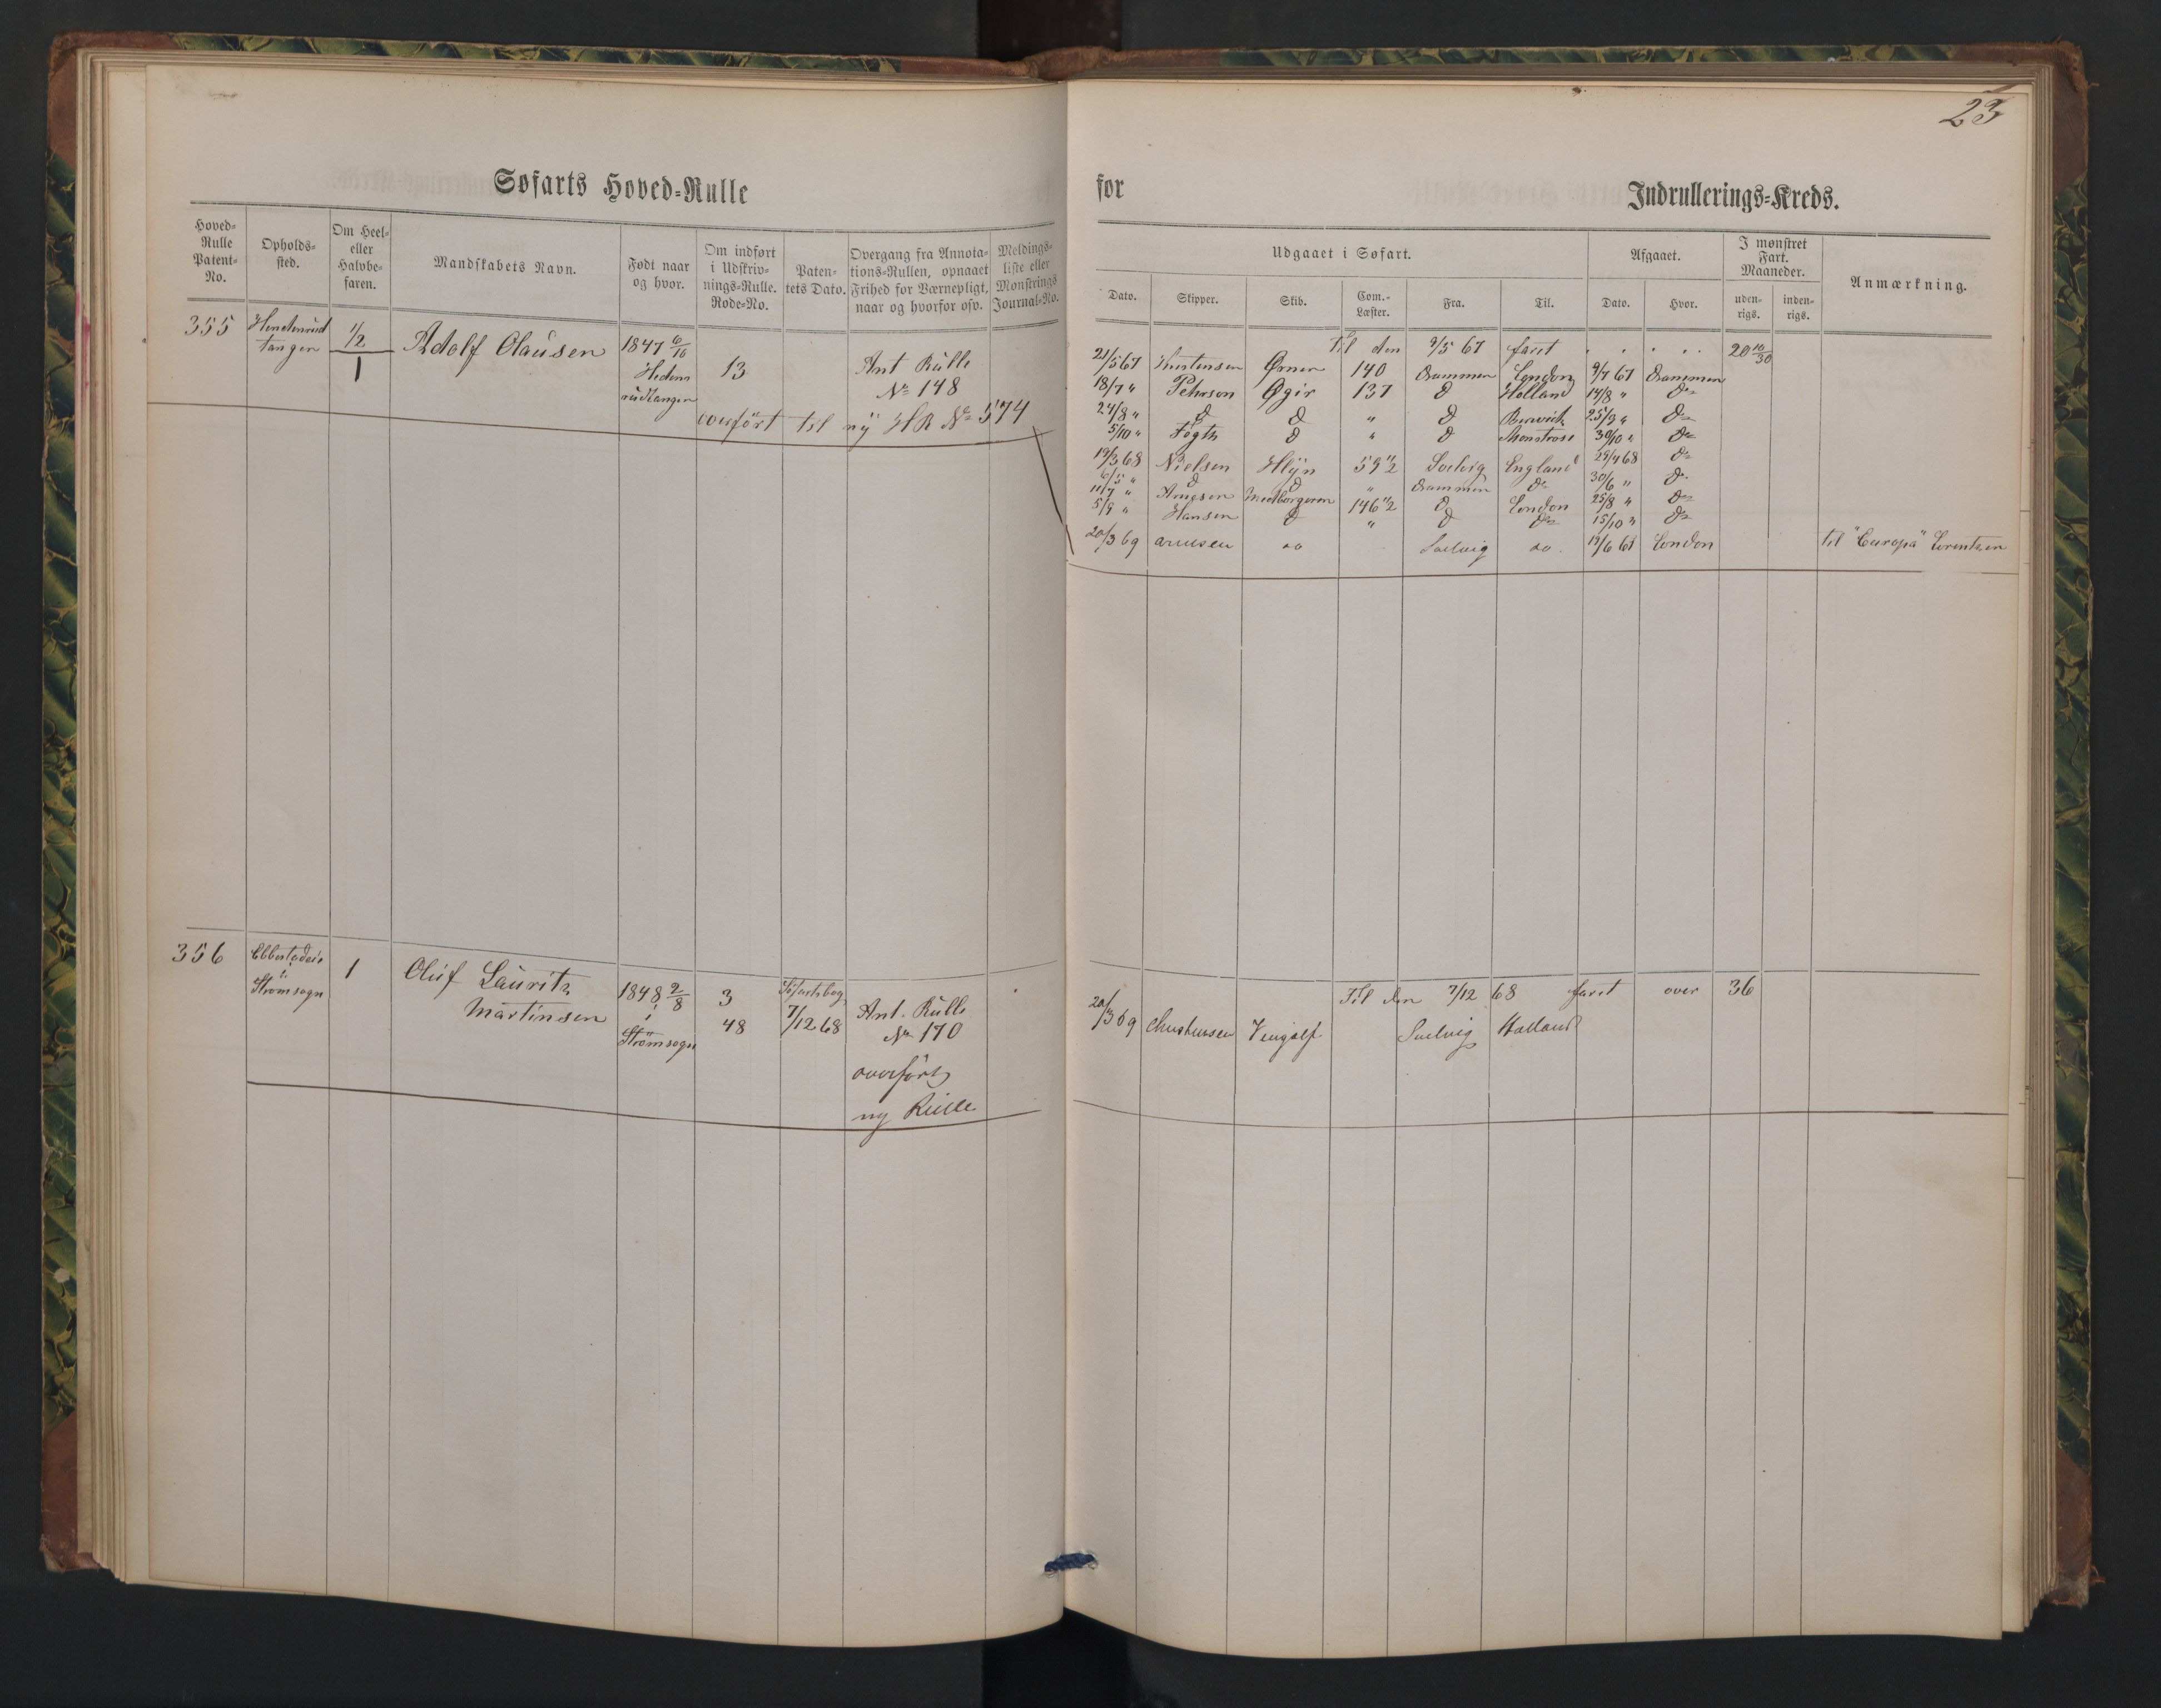 23
Søfarts Hoved-Rulle
for Indrullerings-Kreds.
Hoved-Rulle Patent-No.
Opholds-sted.
Om Heel- eller Halvbe-faren.
Mandskabets Navn.
Født naar og hvor.
Om indført i Udskriv-nings-Rulle. Rode-No.
Paten-tets Dato.
Overgang fra Annota-tions-Rullen, opnaaet Frihed for Værnepligt, naar og hvorfor osv.
Meldings-liste eller Mønstrings Journal-No.
Udgaaet i Søfart.
Afgaaet.
I mønstret Fart. Maaneder.
Anmærkning.
Dato. Skipper. Skib. Com.-Læster. Fra. Til. Dato. Hvor. uden-rigs. inden-rigs.
355 tangen 1/2 Adolf Olausen 1847 6/10
1 13 Ant Rulle
No 148
overført til ny HR No 574
Til den 9/5 67 faret 20 10/30
21/5 67 Christensen Ørnen 140 Drammen London 9/7 67 Drammen
18/7 " Peterson Øgir 137 d Holland 14/8 " do
24/8 " d d " d Berwick 25/9 " do
5/10 " Fogth d " d Montrose 30/10 " do
19/3 68 Nielsen Hlyn 59 1/2 Svelvig England 25/4 68 do
6/5 " d d " Drammen do 30/6 " do
11/7 " Arnesen Medborgeren 146 1/2 d London 25/8 " do
5/9 " Hansen d " d do 15/10 " do
20/3 69 Arnesen do Svelvig do. London til "Europa" Lorentzen
356 i Strømsogn 1 Oluf Lauritz
Martinsen
1848 2/8
i
Strømsogn
3
48
Søfartsbog
7/12 68
Ant. Rulle
No 170
overført
ny Rulle
Til den 7/12 68 faret over 36
20/3 69 Christensen Vingolf Svelvig Holland